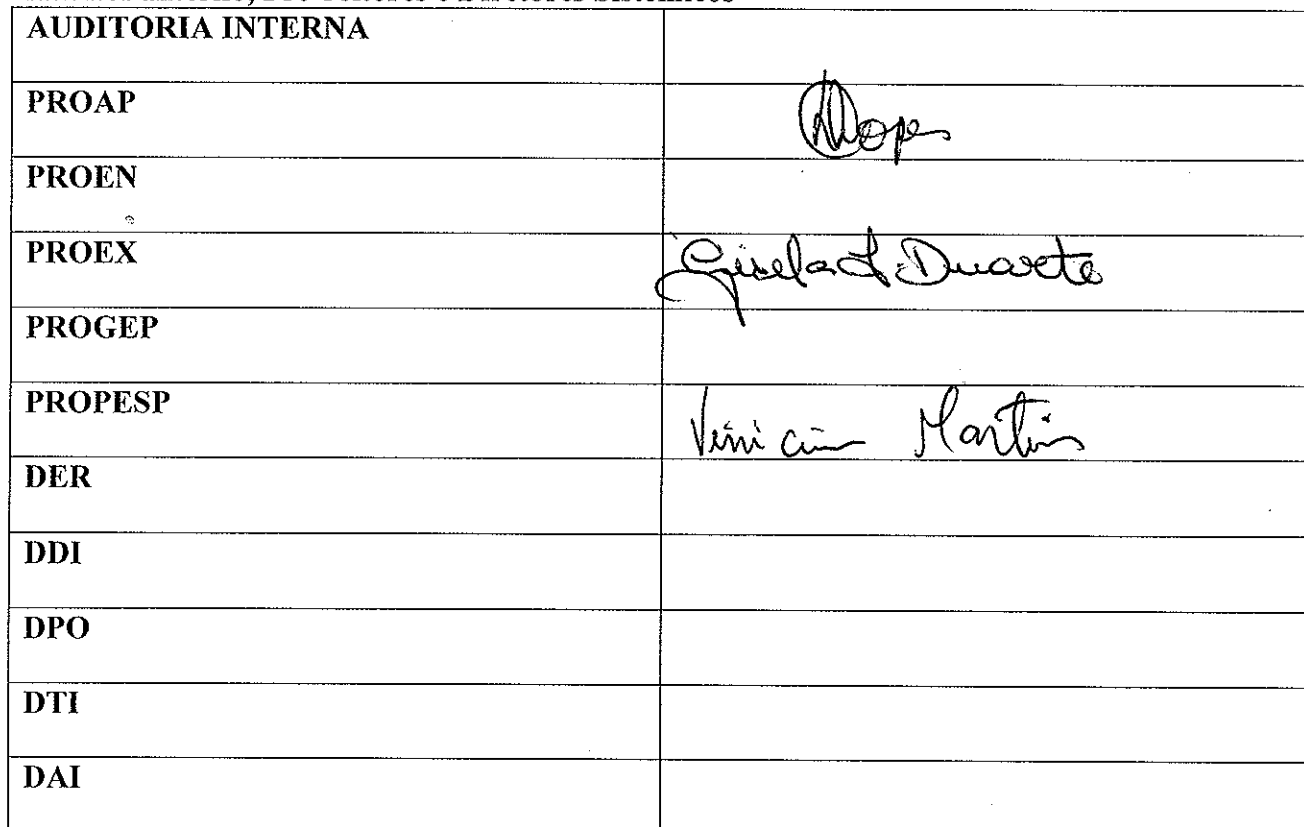 AUDITORIA INTERNA
PROAP
PROEN
PROEX Gisela L. Duarte
PROGEP
PROPESP Vinicius Martins
DER
DDI
DPO
DTI
DAI